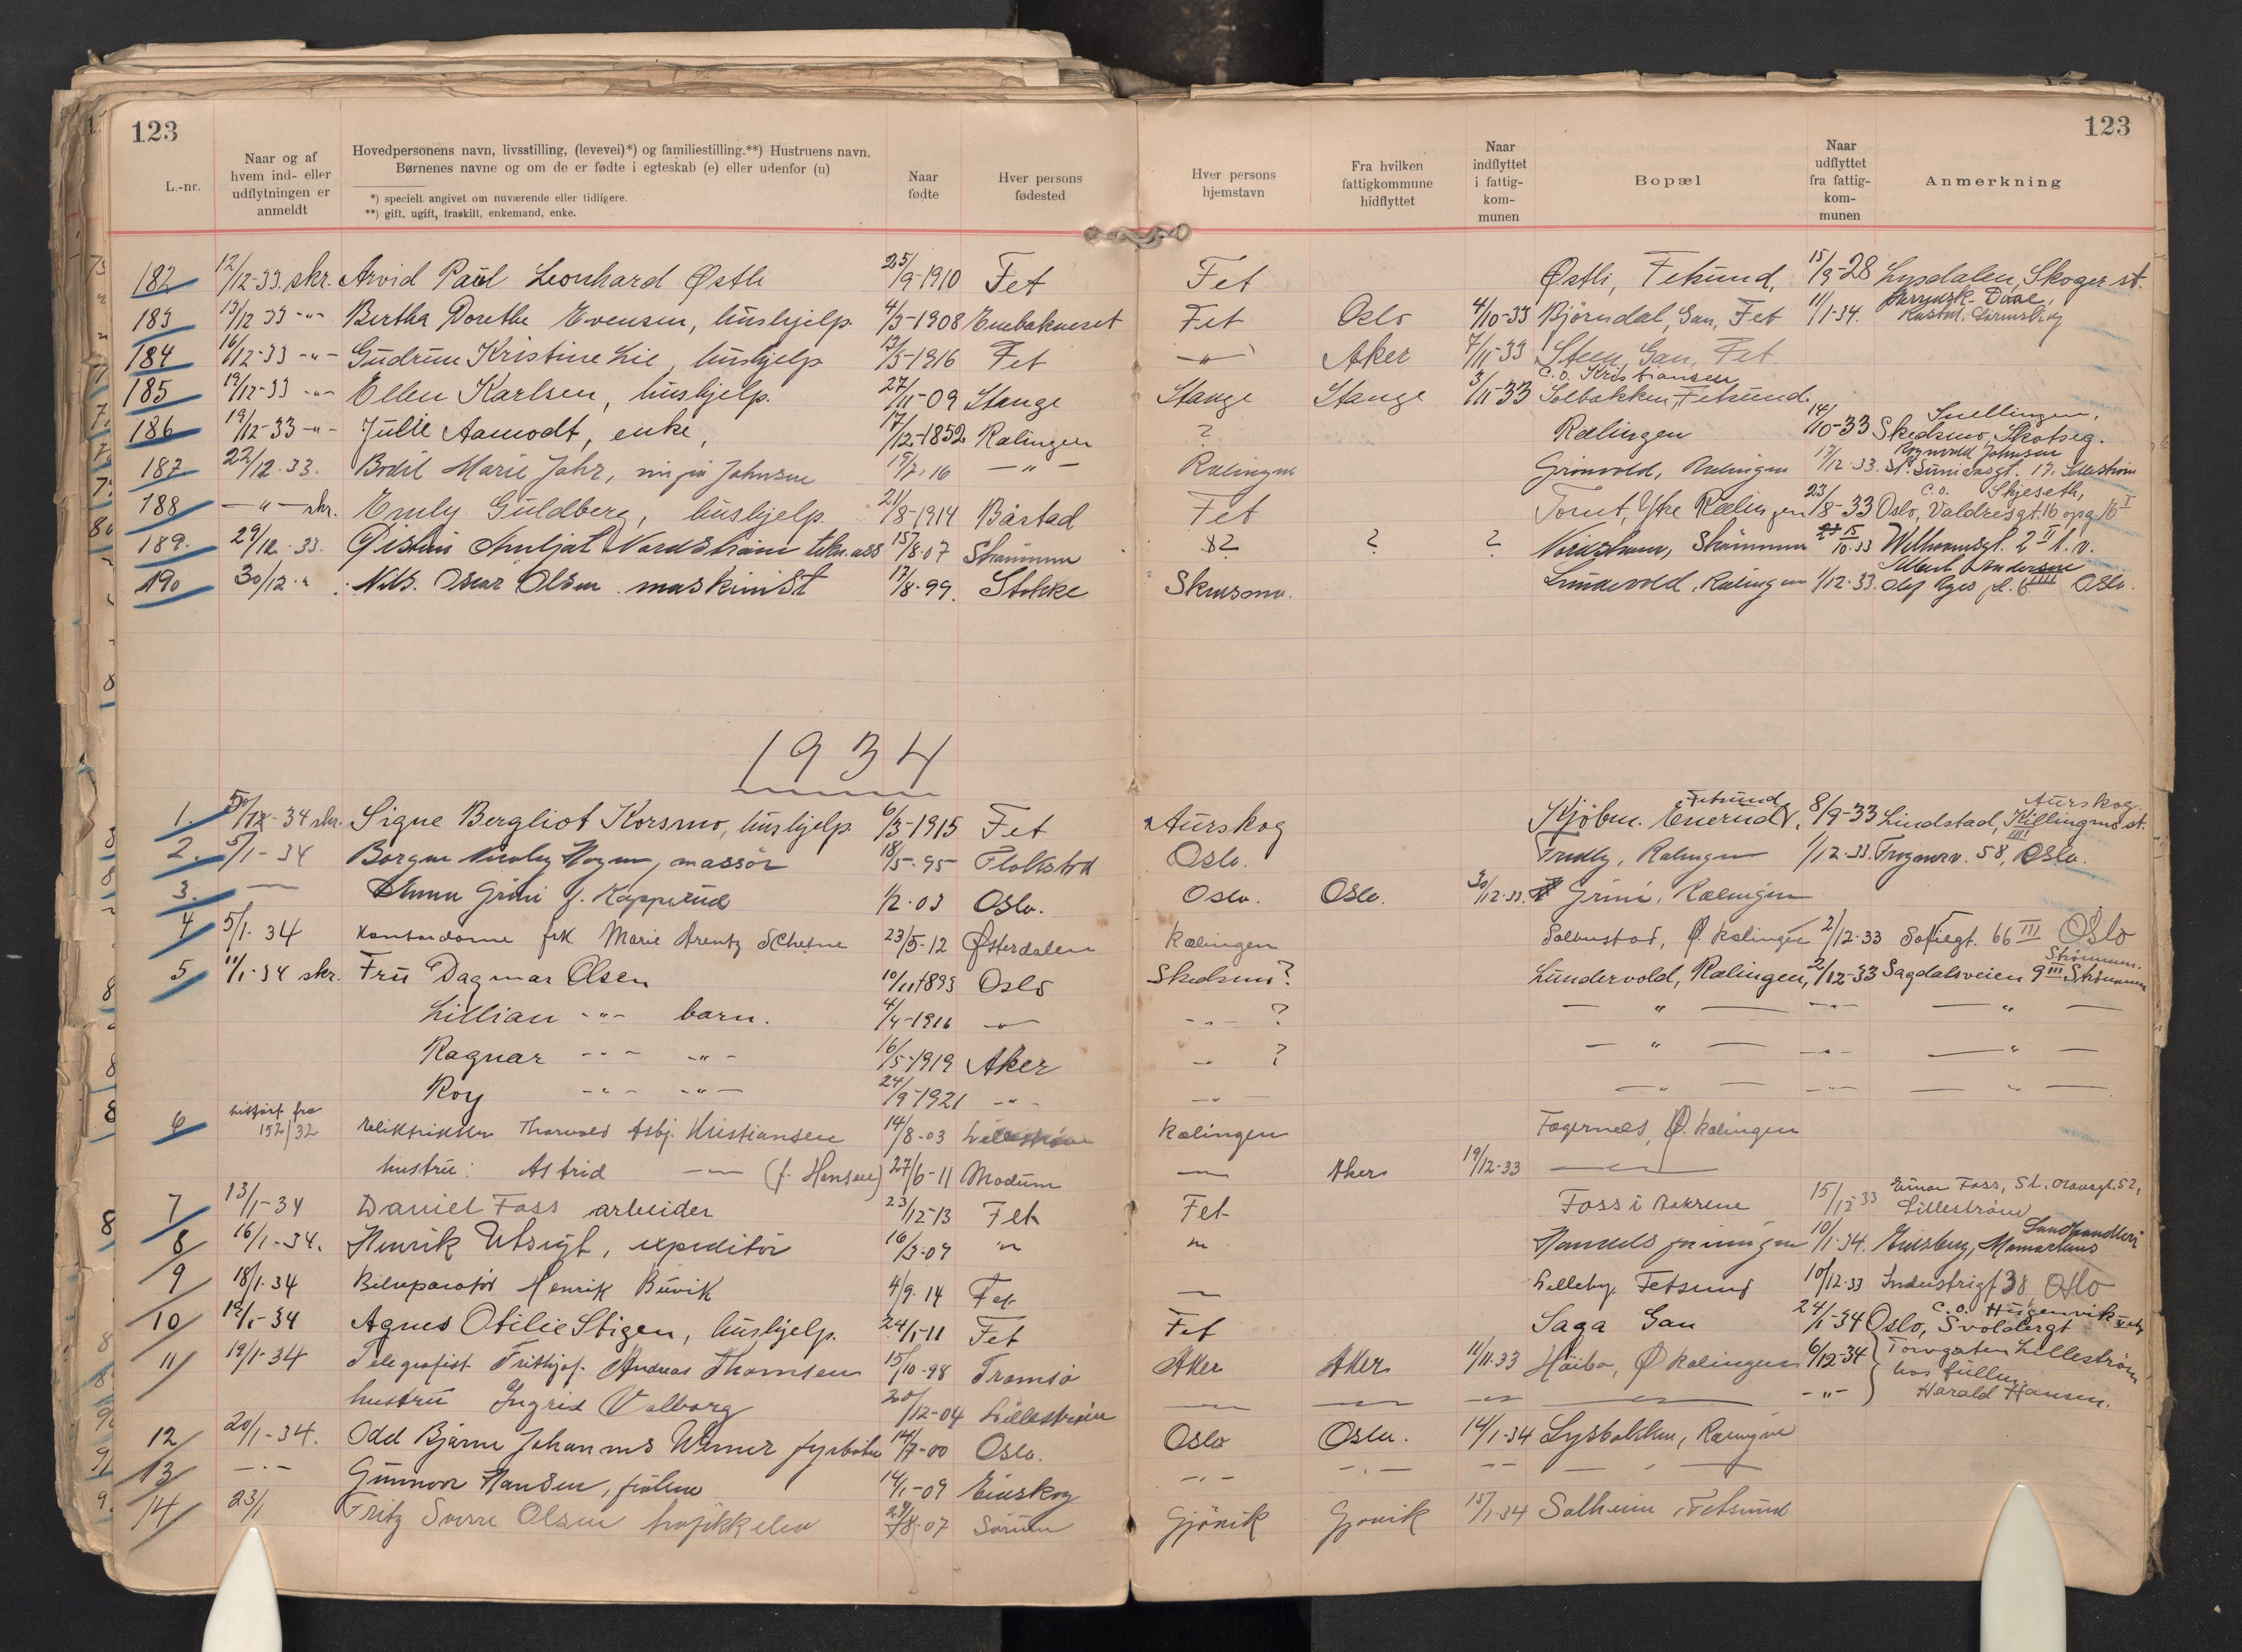 123
123
L.-nr.
Naar og af hvem ind- eller udflytningen er anmeldt
Hovedpersonens navn, livsstilling, (levevei)*) og familiestilling.**) Hustruens navn.
Børnenes navne og om de er fødte i egteskab (e) eller udenfor (u)
*) specielt angivet om nuværende eller tidligere.
**) gift, ugift, fraskilt, enkemand, enke.
Naar fødte
Hver persons fødested
Hver persons hjemstavn
Fra hvilken fattigkommune hidflyttet
Naar indflyttet i fattig-kom-munen
Bopæl
Naar udflyttet fra fattig-kom-munen
Anmerkning
182 12/12-33. skr. Arvid Paul Leonhard Østli 25/9-1910 Fet Fet Østli, Fetsund, 15/9-28 Lysdalen, Skoger st.
183 13/12 33 -"- Bertha Dorethe Evensen, hushjelp. 4/3-1908 Enebakneset Fet Oslo 4/10-33 Björndal, Gan, Fet 11/1-34.
184 16/12-33 -"- Gudrun Kristine Lie, hushjelp 13/5-1916 Fet -"- Aker 7/11-33 Steen, Gan, Fet
c.o. Kristiansen
185 19/12-33 -"- Ellen Karlsen, hushjelp. 27/11-09 Stange Stange Stange 3/11-33 Solbakken, Fetsund.
Snellingen,
186 19/12-33 -"- Julie Aamodt, enke, 17/12-1852 Rælingen ? Rælingen 14/10-33 Skedsmo, Skotseg.
Ragnvald Johnsen
187 22/12.33. Bodil Marie Johnsen 19/2.16 -"- Rælingen Grinvold, Rælingen 17/12.33. St. Sunivasgt. 17. Lilleström
c.o. Skjeseth,
188 -"- skr. Emly Guldberg, hushjelp. 21/8-1914 Båstad Fet Tomt, Ytre Rælingen 23/8-33 Oslo, Valdresgt. 16 opg. 16 I
189. 29/12.33. Nordstrøm 15/8.07 Strømmen ? ? Nordstrøm, Strømmen 15/10.33 2 II t.v.
Andersen
190 30/12 -" Nils Oscar Olsen maskinist 17/8.99. Stokke Lundervold, Rælingen 1/12.33. Olaf Ryes pl. 6 IIII Oslo.
1934
Fetsund Aurskog.
1. 34 skr. Signe Bergliot Korsmo, hushjelp. 6/3-1915 Fet Aurskog Kjöbm. Enerud, 8/9-33 Lindstad, Killingmo st.
2. 5/1-34 massör 18/5-95 Flakstad Oslo. Rælingen 1/12.33. Frognerv. 58, IIII Oslo.
3. — Grini f. Kopperud 1/2.03 Oslo. Oslo. Oslo. 30/12.33. Grini, Rælingen
4 5/1.34 Kontordame frk. Marie Arentz Schetne 23/5-12 Østerdalen Rælingen Ø. Rælingen 2/12-33 Sofiegt. 66 III Oslo
Strömmen.
5 11/1-34 skr. Fru Dagmar Olsen 10/11 1893 Oslo Skedsmo? Lundervold, Rælingen, 2/12-33 Sagdalsveien 9 III Strömmen
Lillian -"- barn. 4/4-1916 -"- -"- ? -"- -"- -"-
Ragnar -"- -"- 16/5-1919 Aker -"- ? -"- -"- -"-
Roy -"- -"- 24/9-1921 -"- -"- -"- -"- -"-
6 hitført fra 152/32 elektriker Thorvald Asbj. Kristiansen 14/8-03 Lilleström Rælingen Fagernes, Ø. Rælingen
hustru: Astrid —"— (f. Hansen) 27/6-11 Modum —"— Aker 19/12-33 —"—
7 13/1-34 Daniel Foss arbeider 23/12-13 Fet Fet Foss i Bakkene 15/12 33 Einar Foss, St. Olavsgt. 52, Lilleström
8 16/1-34. Henrik Utsigt, expeditör 16/3-09 -"- -"- 10/1-34. Landhandleri
9 18/1.34 Bilreparatør Henrik Buvik 4/9.14 Fet —"— Lilleby, Fetsund 10/12.33 Industrigt 38 Oslo
c.o. Haugenvik
10 19/1-34 Agnes Otilie Stigen, hushjelp. 24/1-11 Fet Fet Saga Gan 24/1-34 Oslo, Svoldergt
11 19/1-34 Telegrafist Frithjof Andreas Thomsen 15/10-98 Tromsö Aker Aker 11/11.33 Höibo, Ø Rælingen 6/12-34 Torvgaten Lilleström
hustru Ingrid Valborg 20/12-04 Lilleström —"— —"— —"— —"— -"- hos Harald Hansen.
12 20/1-34. Odd Bjarne Johannes Werner fyrböter 14/7-00 Oslo. Oslo Oslo. 14/1-34 Lysbakken, Rælingen
13 -"- Gunnvor Hansen, frøken 14/1-09 Eidskog -"- -"- -"- -"-
14 23/1 Fritz Sverre Olsen trafikkelev 29/8.07 Sørum Gjövik Gjøvik 15/1-34 Solheim, Fetsund